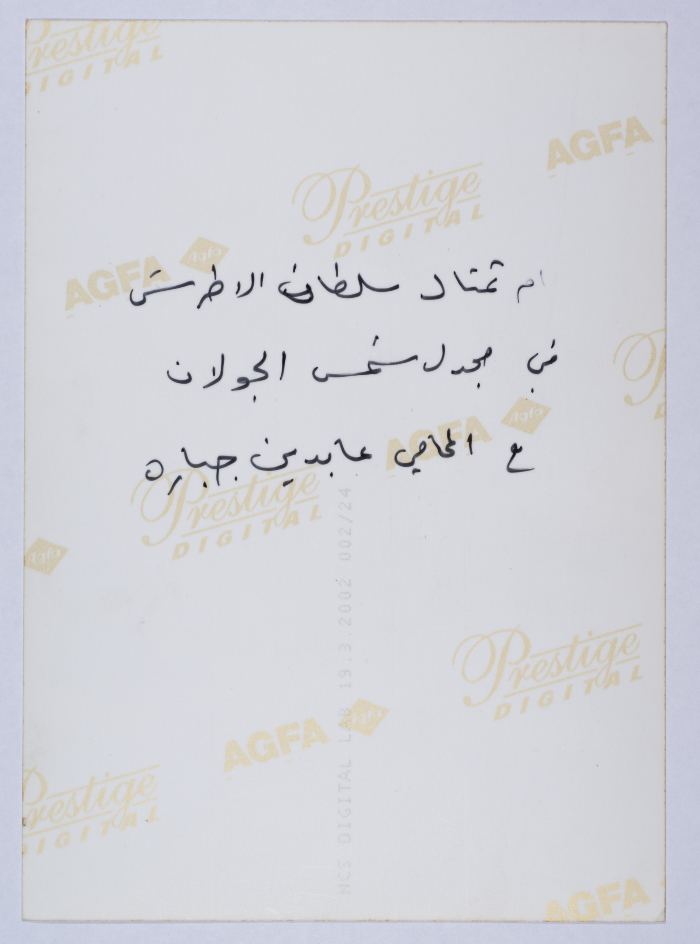 Prestige
DIGITAL
AGFA
Prestige
DIGITAL
AGFA Agfa
ام تمثال سلطان الاطرش
في مجدل شمس الجولان
AGFA Agfa
مع المحامي عابدين جباره
Prestige
DIGITAL
Agfa
NCS DIGITAL LAB 19.3.2002 002/24
Prestige
DIGITAL
AGFA Agfa
Prestige
DIGITAL
AGFA